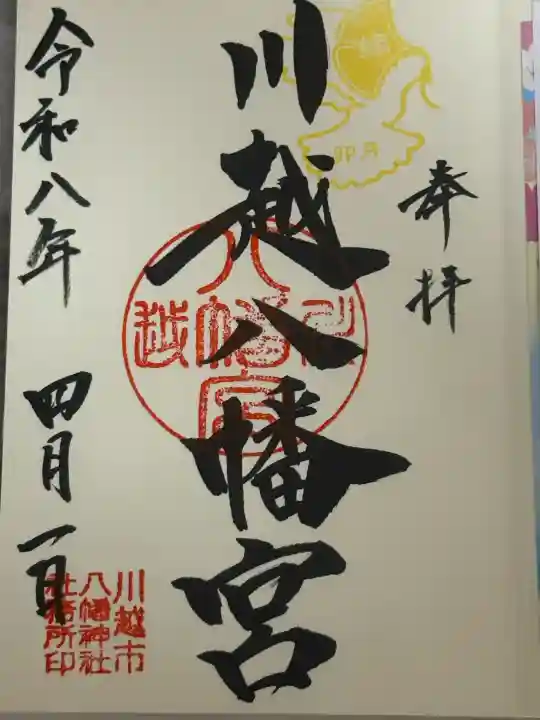 奉拝
卯月
川越八幡宮
川越八幡宮
令和八年 四月一日
川越市
八幡神社
社務所印